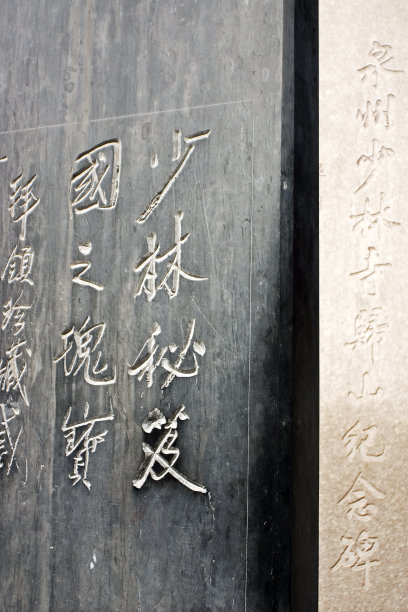 泉州少林寺歸山紀念碑
少林秘笈
國之瑰寶
拜領珍藏